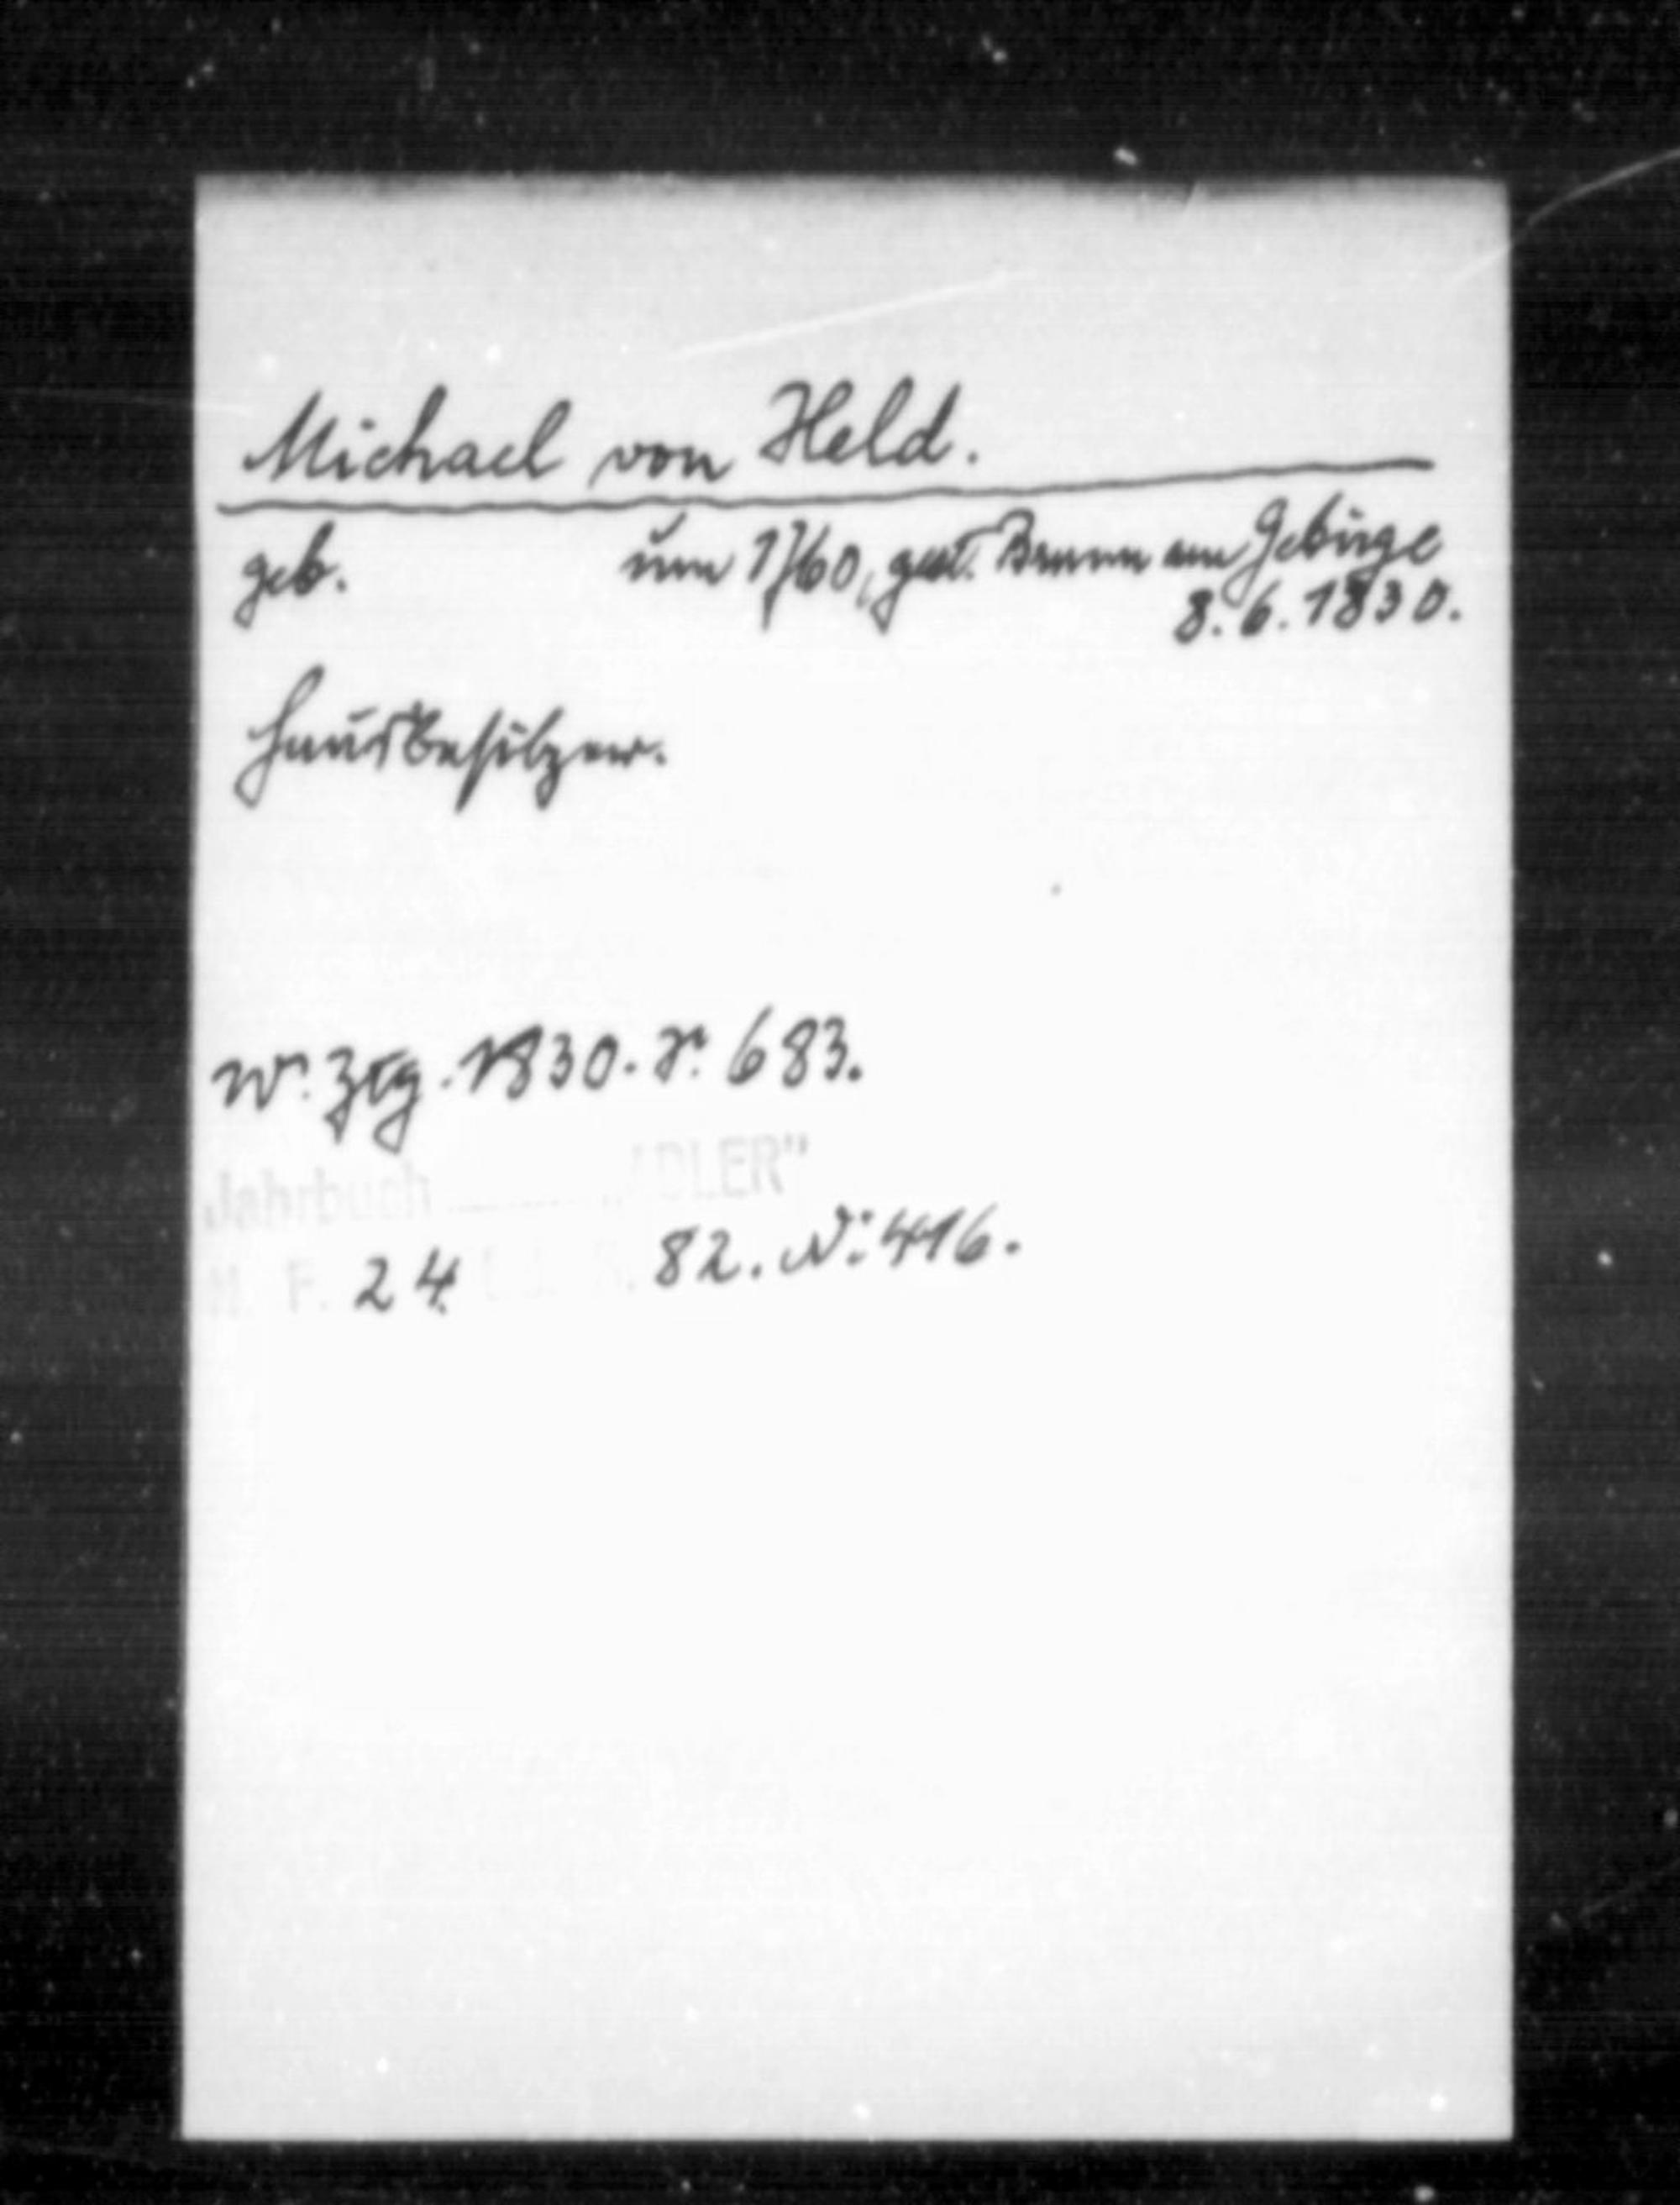 Michael von Held.
geb. um 1760, gest. Brunn am Gebirge
8.6.1830.
Hausbesitzer.
Wr. Ztg. 1830. Sr. 683.
Jahrbuch "ADLER"
N. F. 24. Bd. S. 82. Nr. 416.